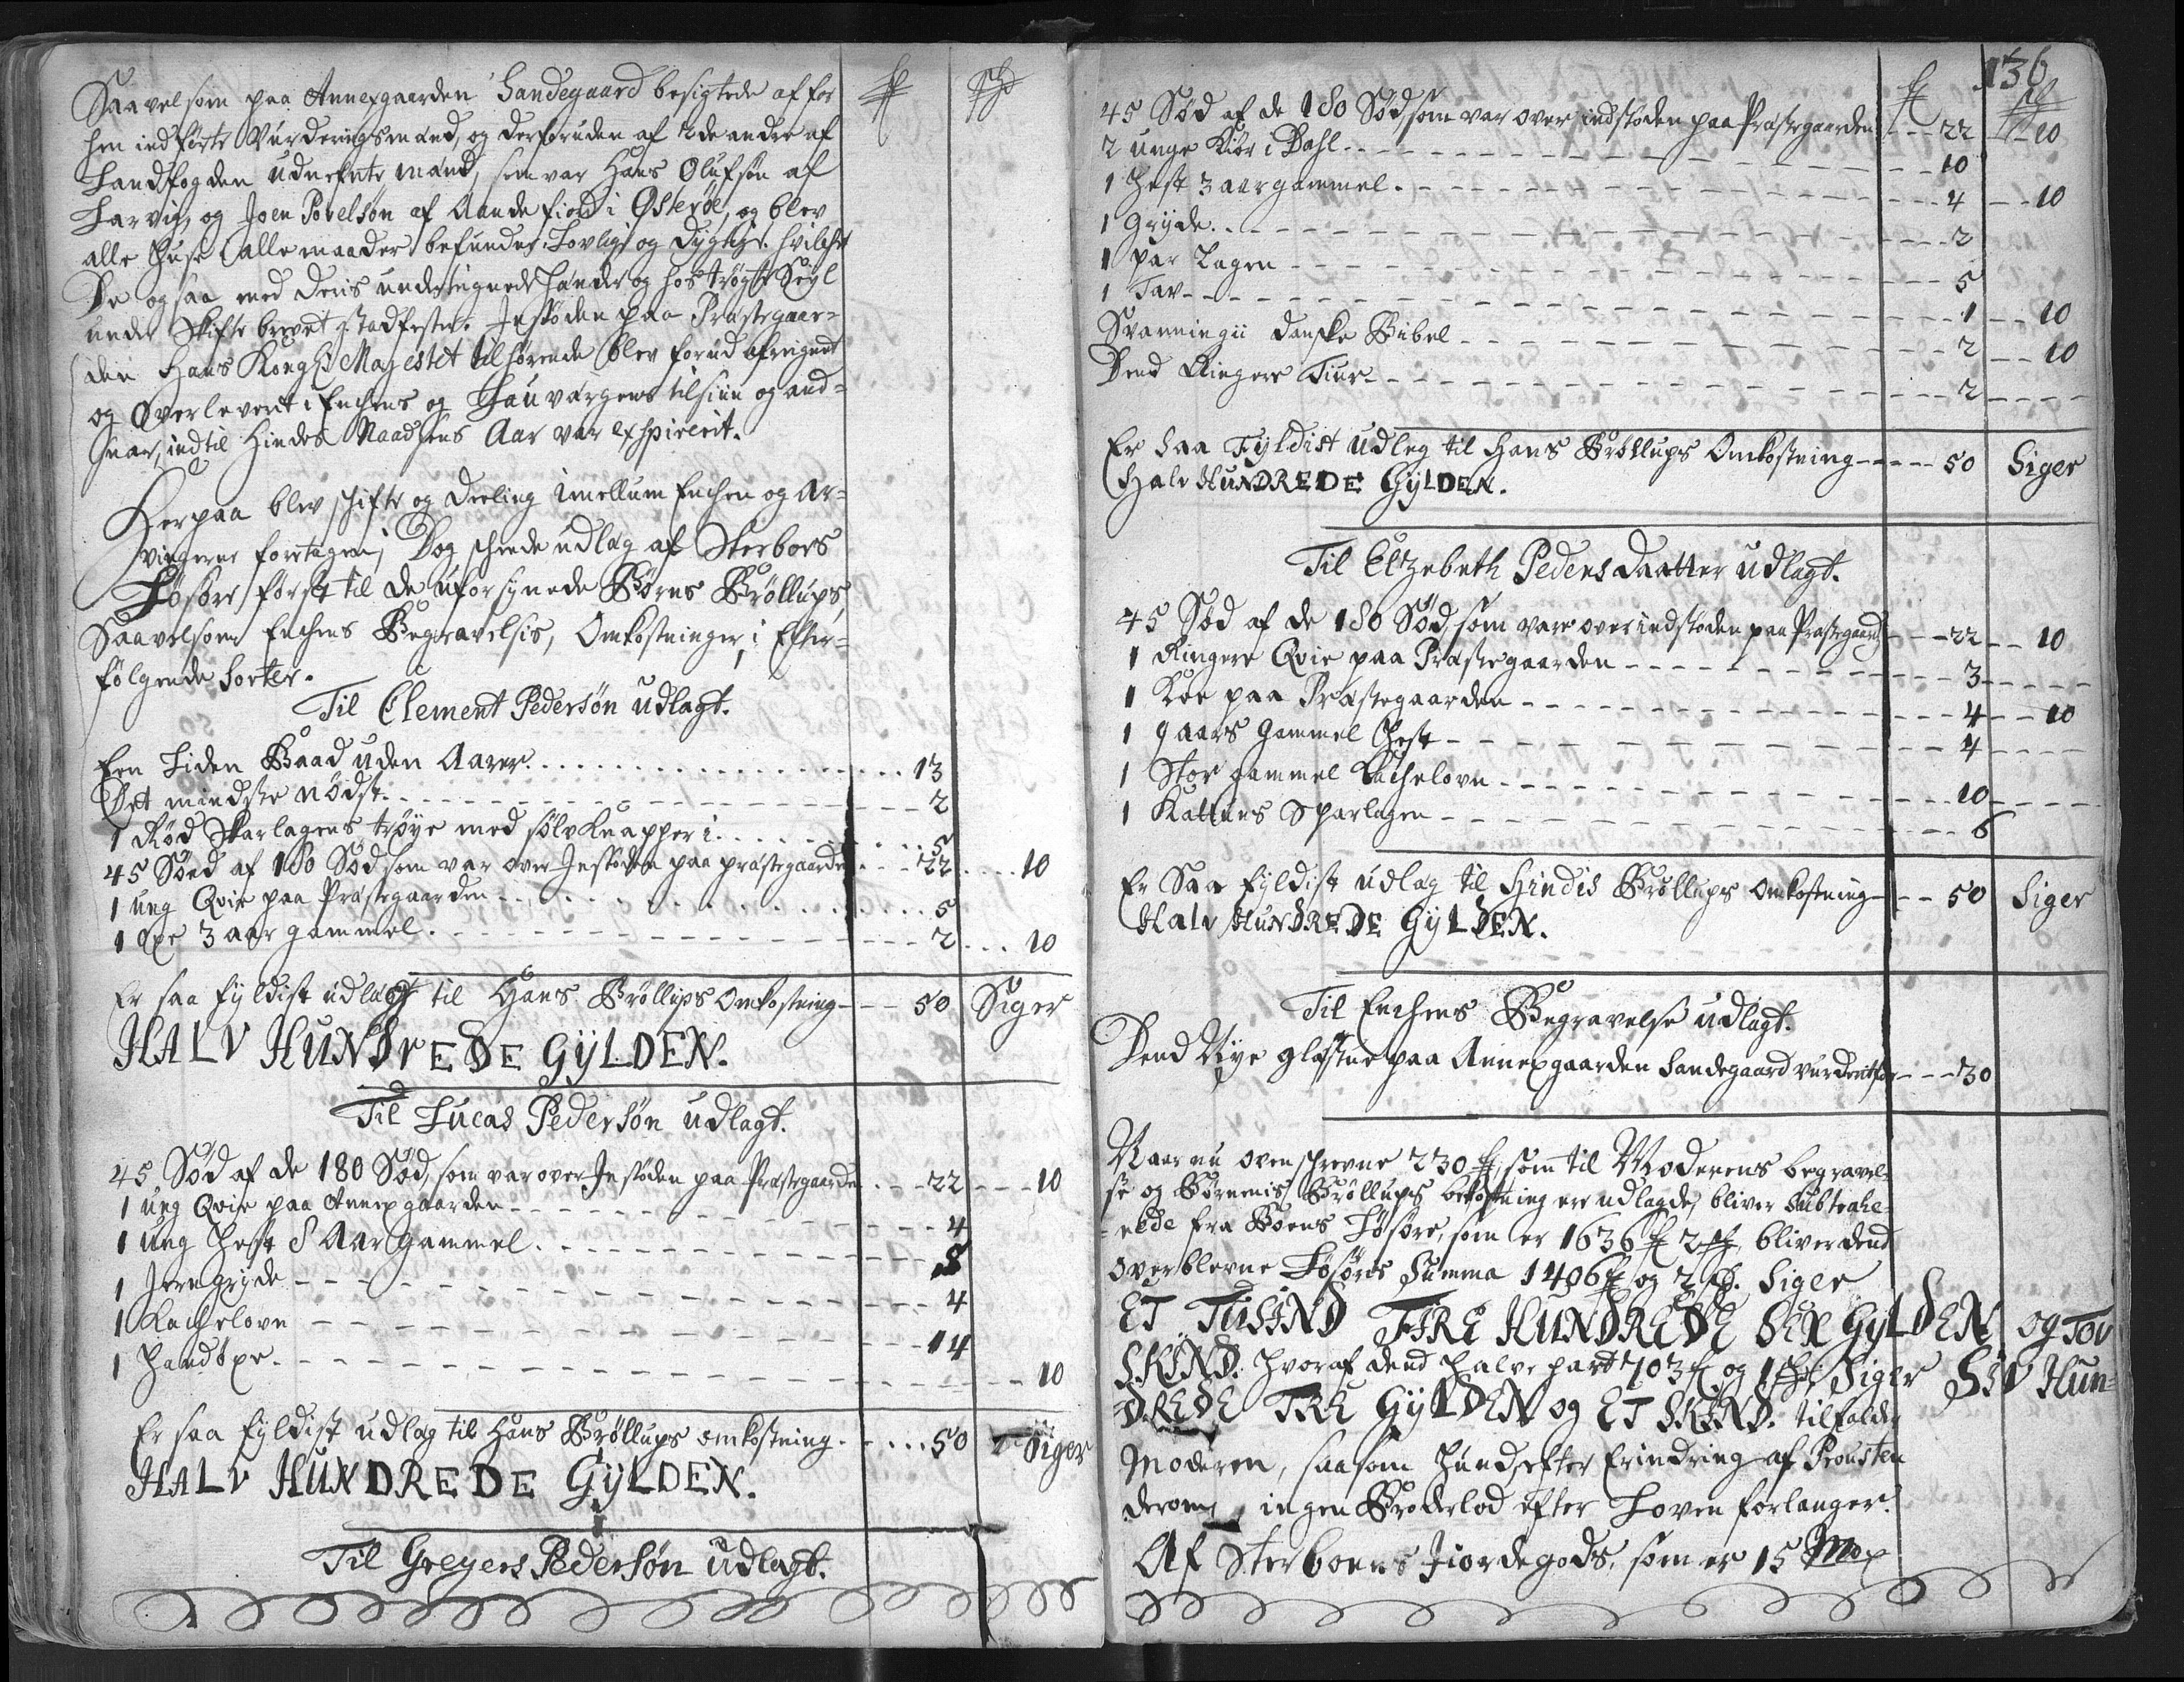 Saavelsom paa Annexgaarden Sandegaard besigtede af for
hen indførte Vurderingsmænd, og derforuden af 2de andre af
Landfogden udnefnte mænd, som var Hans Olufsøn af
Larvig, og Joen Povelsøn af Aandefiord i Østerøe, og blev
alle Huse i alle maader befunden Lovlige og Dygtige. hvilchet
De ogsaa med deris undertegnede Hænder og hostrøgte Seyl
under Skifte brevet stadfester. Instøden paa Præstegaar-
den Hans Kongl: Majestet tilhørende blev forud afreignet
og Overleverit i Enchens og Lauværgens tilsiun og and-
suar, indtil Hindes Naadsens Aar var exspirerit.
Herpaa blev schifte og Deeling imellum Enchen og Ar-
vingerne foretagen, Dog schede udlæg af Sterboes
Løsøre først til de uforsynede Børns Brøllups,
Saavelsom Enchens Begravelsis, Omkostninger, i Efter-
følgende Sorter.
Til Clement Pedersøn udlagt.
Een Liden Baad uden Aarer. 13
Det mindste nødst. 2
1 Rød Skarlagens trøye med sølv Knapper i. 5
45 Søed af 180 Sød som var over Instøden paa præstegaarden 22 10
1 ung Qvie paa Præstegaarden 5
1 Oxe 3 aar gammel. 2 10
Er saa fyldist udlagt til Hans Brøllups Omkostning 50 Siger
HALV HUNDrEDE GYLDEN.
Til Lucas Pedersøn udlagt.
45 Sød af de 180 Sød, som var over Instøden paa Præstegaarden 22 10
1 ung Qvie paa Annexgaarden 4
1 ung Hest 8 Aar gammel. 5
1 Jerngryde 4
1 Kachelovn 14
1 Handøxe. 10
Er saa fyldist udlag til Hans Brøllups omkostning. 50 Siger
HALV HUNDREDE GYLDEN.
Til Greyers Pedersøn udlagt.
136
45 Sød af de 180 Sød, som var over indstøden paa Præstegaarden 22 10
2 unge Kiør i Dahl 10
1 Hest 3 aar gammel. 4 10
1 Gryde. 2
1 par Lagen 5
1 Tav 1 10
Svanningii danske Bibel 2 10
Dend Ringere Tiur 2
Er saa Fyldist udleg til Hans Brøllups Omkostning 50 Siger
Halv HUNDREDE GYLDEN.
Til Eltzebeth Pedersdaatter udlagt.
45 Sød af de 180 Sød, som vare over indstøden paa Præstegaard 22 10
1 Ringere Qvie paa Præstegaarden 3
1 Koe paa Præstegaarden 4 10
1 9 aars Gammel Hest 4
1 Stor gammel Kachelovn 10
1 Kattuns Sparlagen 6
Er Saa fyldist udlag til Hindis Brøllups Omkostning 50 Siger
Halv HUNDREDE GYLDEN.
Til Enchens Begravelse udlagt.
Dend Nye glastue paa Annexgaarden Sandegaard vurderit for 30
Naar nu ovenschrevne 230 som til Moderens begravel-
se og Børnenis Brøllups bekostning ere udlagde, bliver subtrahe-
rede fra Boens Løsøre, som er 1636 2 bliver dend
overblevne Løsøris Summa 1406 og 2 Siger
ET TUSIND FIRE HUNDREDE SEX GYLDEN og TOV
SKIND. Hvoraf dend halve part 703 og 1 Siger SYV HUN-
DREDE TRE GYLDEN og ET SKIND. tilfalder
Moderen, saasom Hun, efter Erindring af Prousten
derom, ingen Broderlod efter Loven forlanger.
Af Sterboens Jordegods, som er 15